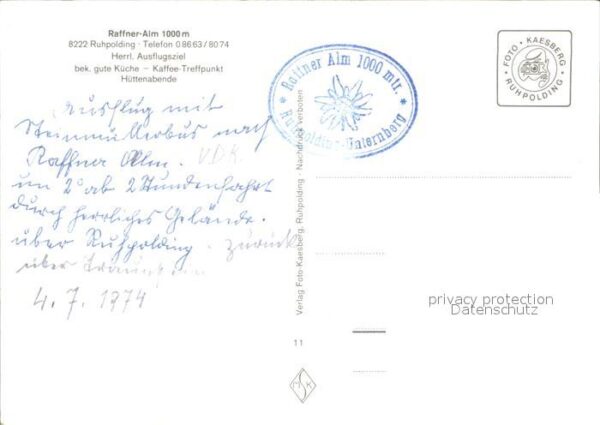 Raffner-Alm 1000 m
8222 Ruhpolding · Telefon 0 86 63 / 80 74
Herrl. Ausflugsziel
bek. gute Küche – Kaffee-Treffpunkt
Hüttenabende
Ausflug mit
Steinmüllerbus nach
Raffner Alm. V.D.K.
um 2° ab 2 Stundenfahrt
durch herrliches Gelände.
über Ruhpolding. zurück
über
4. 7. 1974
* Raffner Alm 1000 mtr. *
Ruhpolding-Unternberg
Verlag Foto-Kaesberg, Ruhpolding · Nachdruck verboten
11
FOTO · KAESBERG · RUHPOLDING ·
MSK
privacy protection
Datenschutz